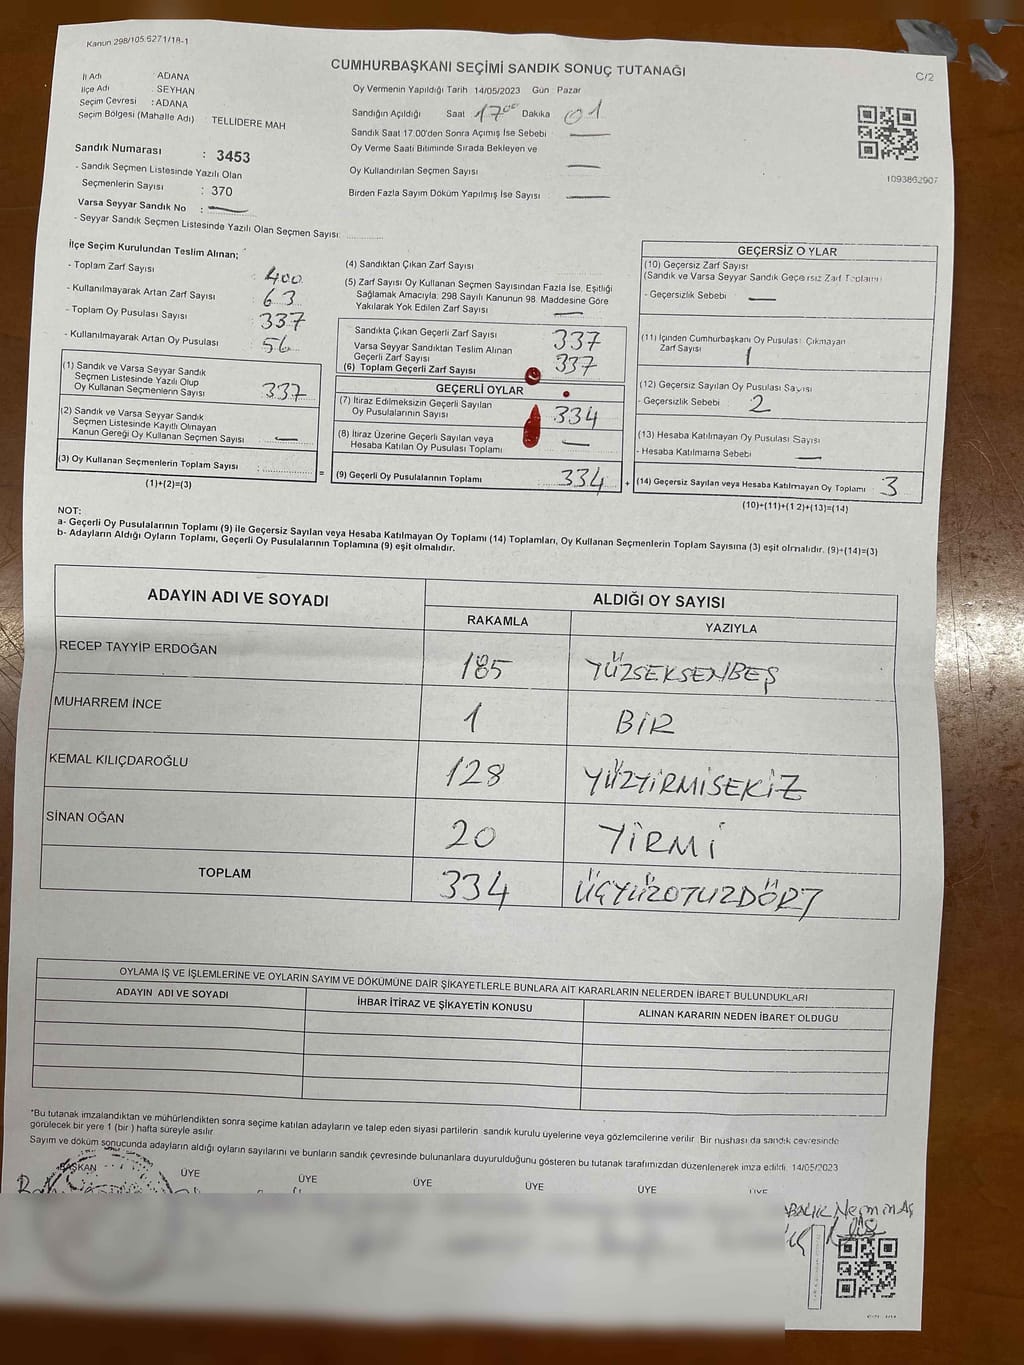 Kanun 298/105 6271/18-1
CUMHURBAŞKANI SEÇİMİ SANDIK SONUÇ TUTANAĞI
C/2
İl Adı : ADANA
İlçe Adı : SEYHAN
Seçim Çevresi : ADANA
Seçim Bölgesi (Mahalle Adı) TELLIDERE MAH
Sandık Numarası : 3453
- Sandık Seçmen Listesinde Yazılı Olan
Seçmenlerin Sayısı : 370
Varsa Seyyar Sandık No : —
- Seyyar Sandık Seçmen Listesinde Yazılı Olan Seçmen Sayısı:
Oy Vermenin Yapıldığı Tarih 14/05/2023 Gün Pazar
Sandığın Açıldığı Saat 17 00 Dakika 01
Sandık Saat 17.00'den Sonra Açımış İse Sebebi —
Oy Verme Saati Bitiminde Sırada Bekleyen ve
Oy Kullandırılan Seçmen Sayısı —
Birden Fazla Sayım Döküm Yapılmış İse Sayısı —
1093862907
İlçe Seçim Kurulundan Teslim Alınan;
- Toplam Zarf Sayısı 400
- Kullanılmayarak Artan Zarf Sayısı 63
- Toplam Oy Pusulası Sayısı 337
- Kullanılmayarak Artan Oy Pusulası 56
(1) Sandık ve Varsa Seyyar Sandık
Seçmen Listesinde Yazılı Olup
Oy Kullanan Seçmenlerin Sayısı 337
(2) Sandık ve Varsa Seyyar Sandık
Seçmen Listesinde Kayıtlı Olmayan
Kanun Gereği Oy Kullanan Seçmen Sayısı —
(3) Oy Kullanan Seçmenlerin Toplam Sayısı :
(1)+(2)=(3)
=
(4) Sandıktan Çıkan Zarf Sayısı
(5) Zarf Sayısı Oy Kullanan Seçmen Sayısından Fazla İse, Eşitliği
Sağlamak Amacıyla: 298 Sayılı Kanunun 98. Maddesine Göre
Yakılarak Yok Edilen Zarf Sayısı —
Sandıkta Çıkan Geçerli Zarf Sayısı 337
Varsa Seyyar Sandıktan Teslim Alınan
Geçerli Zarf Sayısı 337
(6) Toplam Geçerli Zarf Sayısı
GEÇERLİ OYLAR
(7) İtiraz Edilmeksizin Geçerli Sayılan
Oy Pusulalarının Sayısı 334
(8) İtiraz Üzerine Geçerli Sayılan veya
Hesaba Katılan Oy Pusulası Toplamı —
(9) Geçerli Oy Pusulalarının Toplamı 334
+
GEÇERSİZ OYLAR
(10) Geçersiz Zarf Sayısı
(Sandık ve Varsa Seyyar Sandık Geçersiz Zarf Toplamı)
- Geçersizlik Sebebi —
(11) İçinden Cumhurbaşkanı Oy Pusulası Çıkmayan
Zarf Sayısı 1
(12) Geçersiz Sayılan Oy Pusulası Sayısı
- Geçersizlik Sebebi 2
(13) Hesaba Katılmayan Oy Pusulası Sayısı
- Hesaba Katılmama Sebebi —
(14) Geçersiz Sayılan veya Hesaba Katılmayan Oy Toplamı 3
(10)+(11)+(12)+(13)=(14)
NOT:
a- Geçerli Oy Pusulalarının Toplamı (9) ile Geçersiz Sayılan veya Hesaba Katılmayan Oy Toplamı (14) Toplamları, Oy Kullanan Seçmenlerin Toplam Sayısına (3) eşit olmalıdır. (9)+(14)=(3)
b- Adayların Aldığı Oyların Toplamı, Geçerli Oy Pusulalarının Toplamına (9) eşit olmalıdır.
ADAYIN ADI VE SOYADI
ALDIĞI OY SAYISI
RAKAMLA YAZIYLA
RECEP TAYYİP ERDOĞAN 185 YÜZSEKSENBEŞ
MUHARREM İNCE 1 BİR
KEMAL KILIÇDAROĞLU 128 YÜZYİRMİSEKİZ
SİNAN OĞAN 20 YİRMİ
TOPLAM 334 ÜÇYÜZOTUZDÖRT
OYLAMA İŞ VE İŞLEMLERİNE VE OYLARIN SAYIM VE DÖKÜMÜNE DAİR ŞİKAYETLERLE BUNLARA AİT KARARLARIN NELERDEN İBARET BULUNDUKLARI
ADAYIN ADI VE SOYADI
İHBAR İTİRAZ VE ŞİKAYETİN KONUSU
ALINAN KARARIN NEDEN İBARET OLDUĞU
*Bu tutanak imzalandıktan ve mühürlendikten sonra seçime katılan adayların ve talep eden siyasi partilerin sandık kurulu üyelerine veya gözlemcilerine verilir. Bir nüshası da sandık çevresinde
görülecek bir yere 1 (bir) hafta süreyle asılır
Sayım ve döküm sonucunda adayların aldığı oyların sayılarını ve bunların sandık çevresinde bulunanlara duyurulduğunu gösteren bu tutanak tarafımızdan düzenlenerek imza edildi. 14/05/2023
BAŞKAN ÜYE ÜYE ÜYE ÜYE ÜYE ÜYE